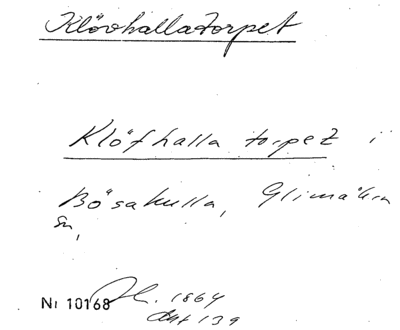 Klövhallatorpet
Klöfhalla torpet i
Bösakulla, Glimåkra
sn,
Nr 10168 1864
Akt 139